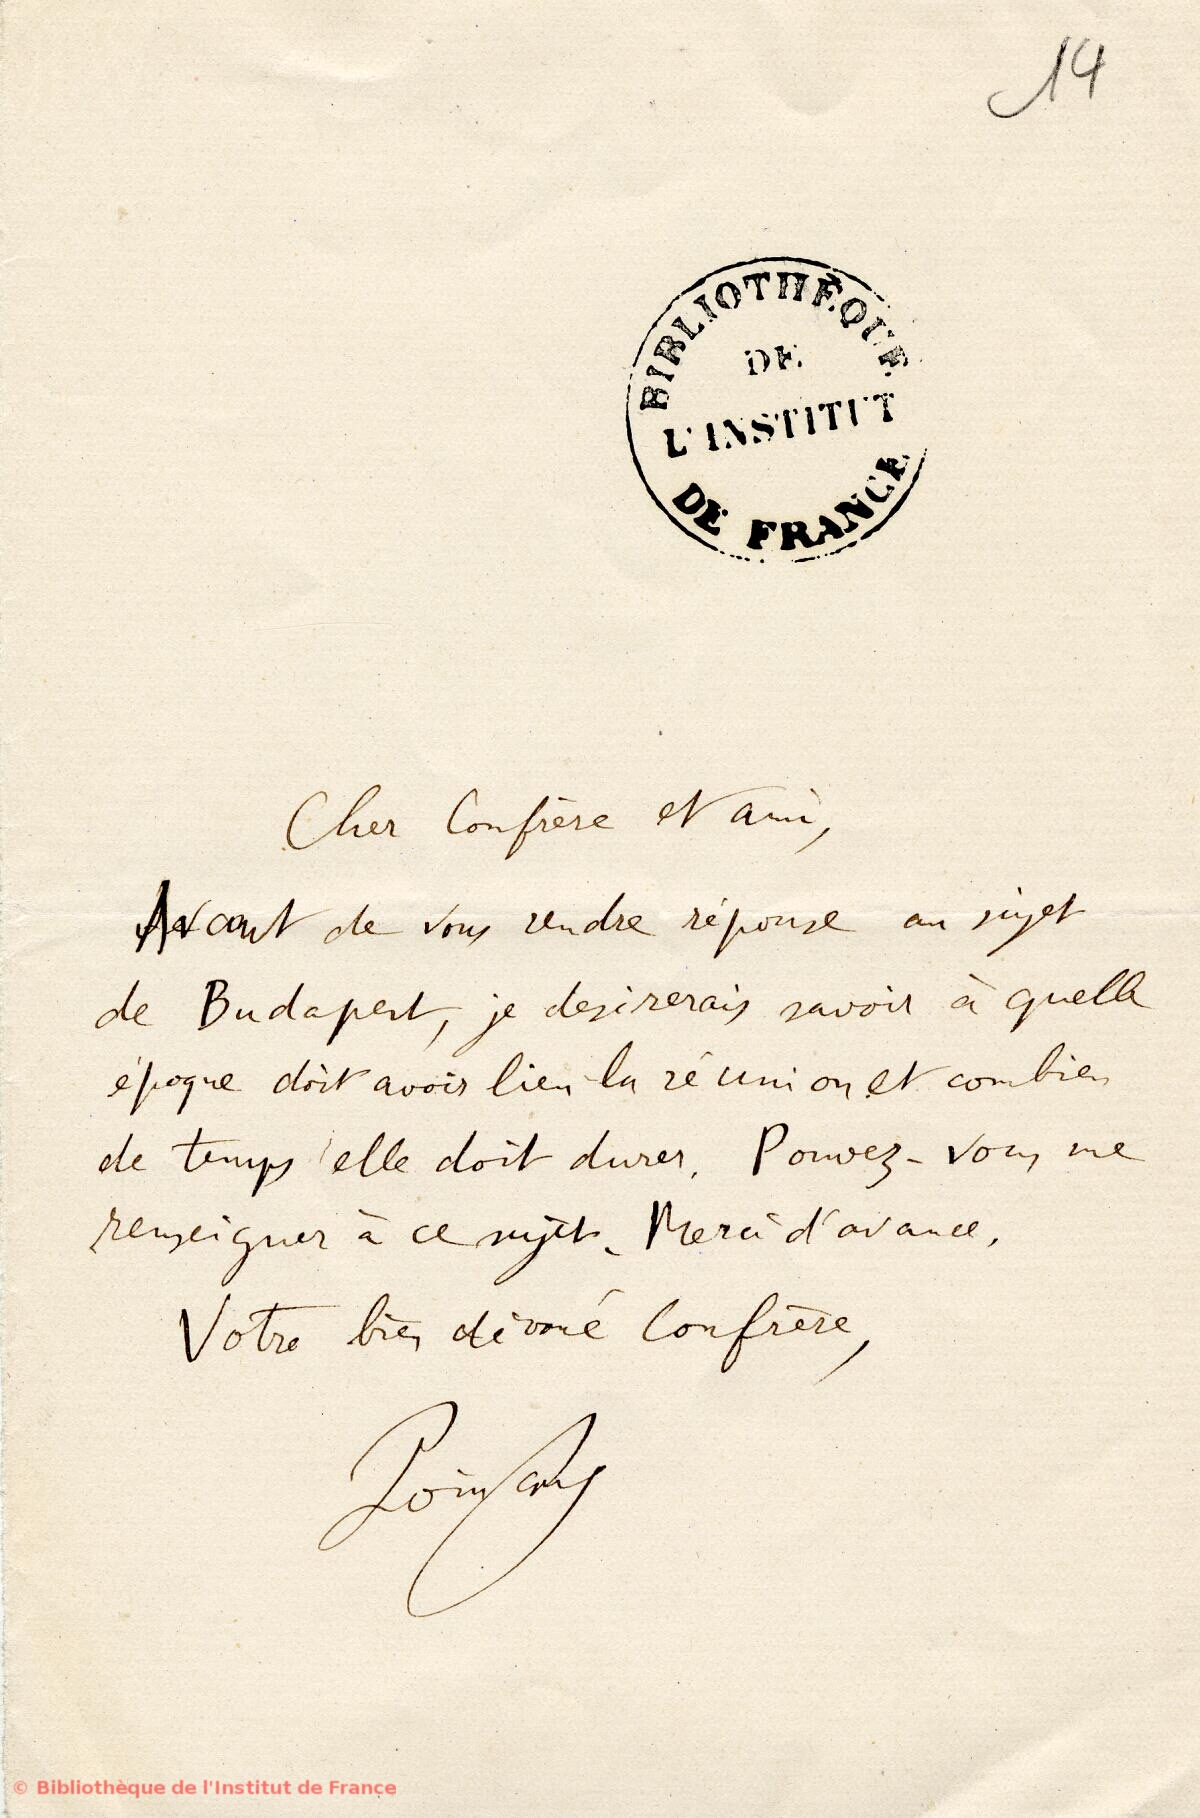 14
BIBLIOTHÈQUE
DE
L'INSTITUT
DE FRANCE
Cher Confrère et ami,
Avant de vous rendre réponse au sujet
de Budapest, je desirerais savoir à quelle
époque doit avoir lieu la réunion et combien
de temps elle doit durer. Pouvez-vous me
renseigner à ce sujet. Merci d'avance.
Votre bien dévoué Confrère,
Poincaré
© Bibliothèque de l'Institut de France